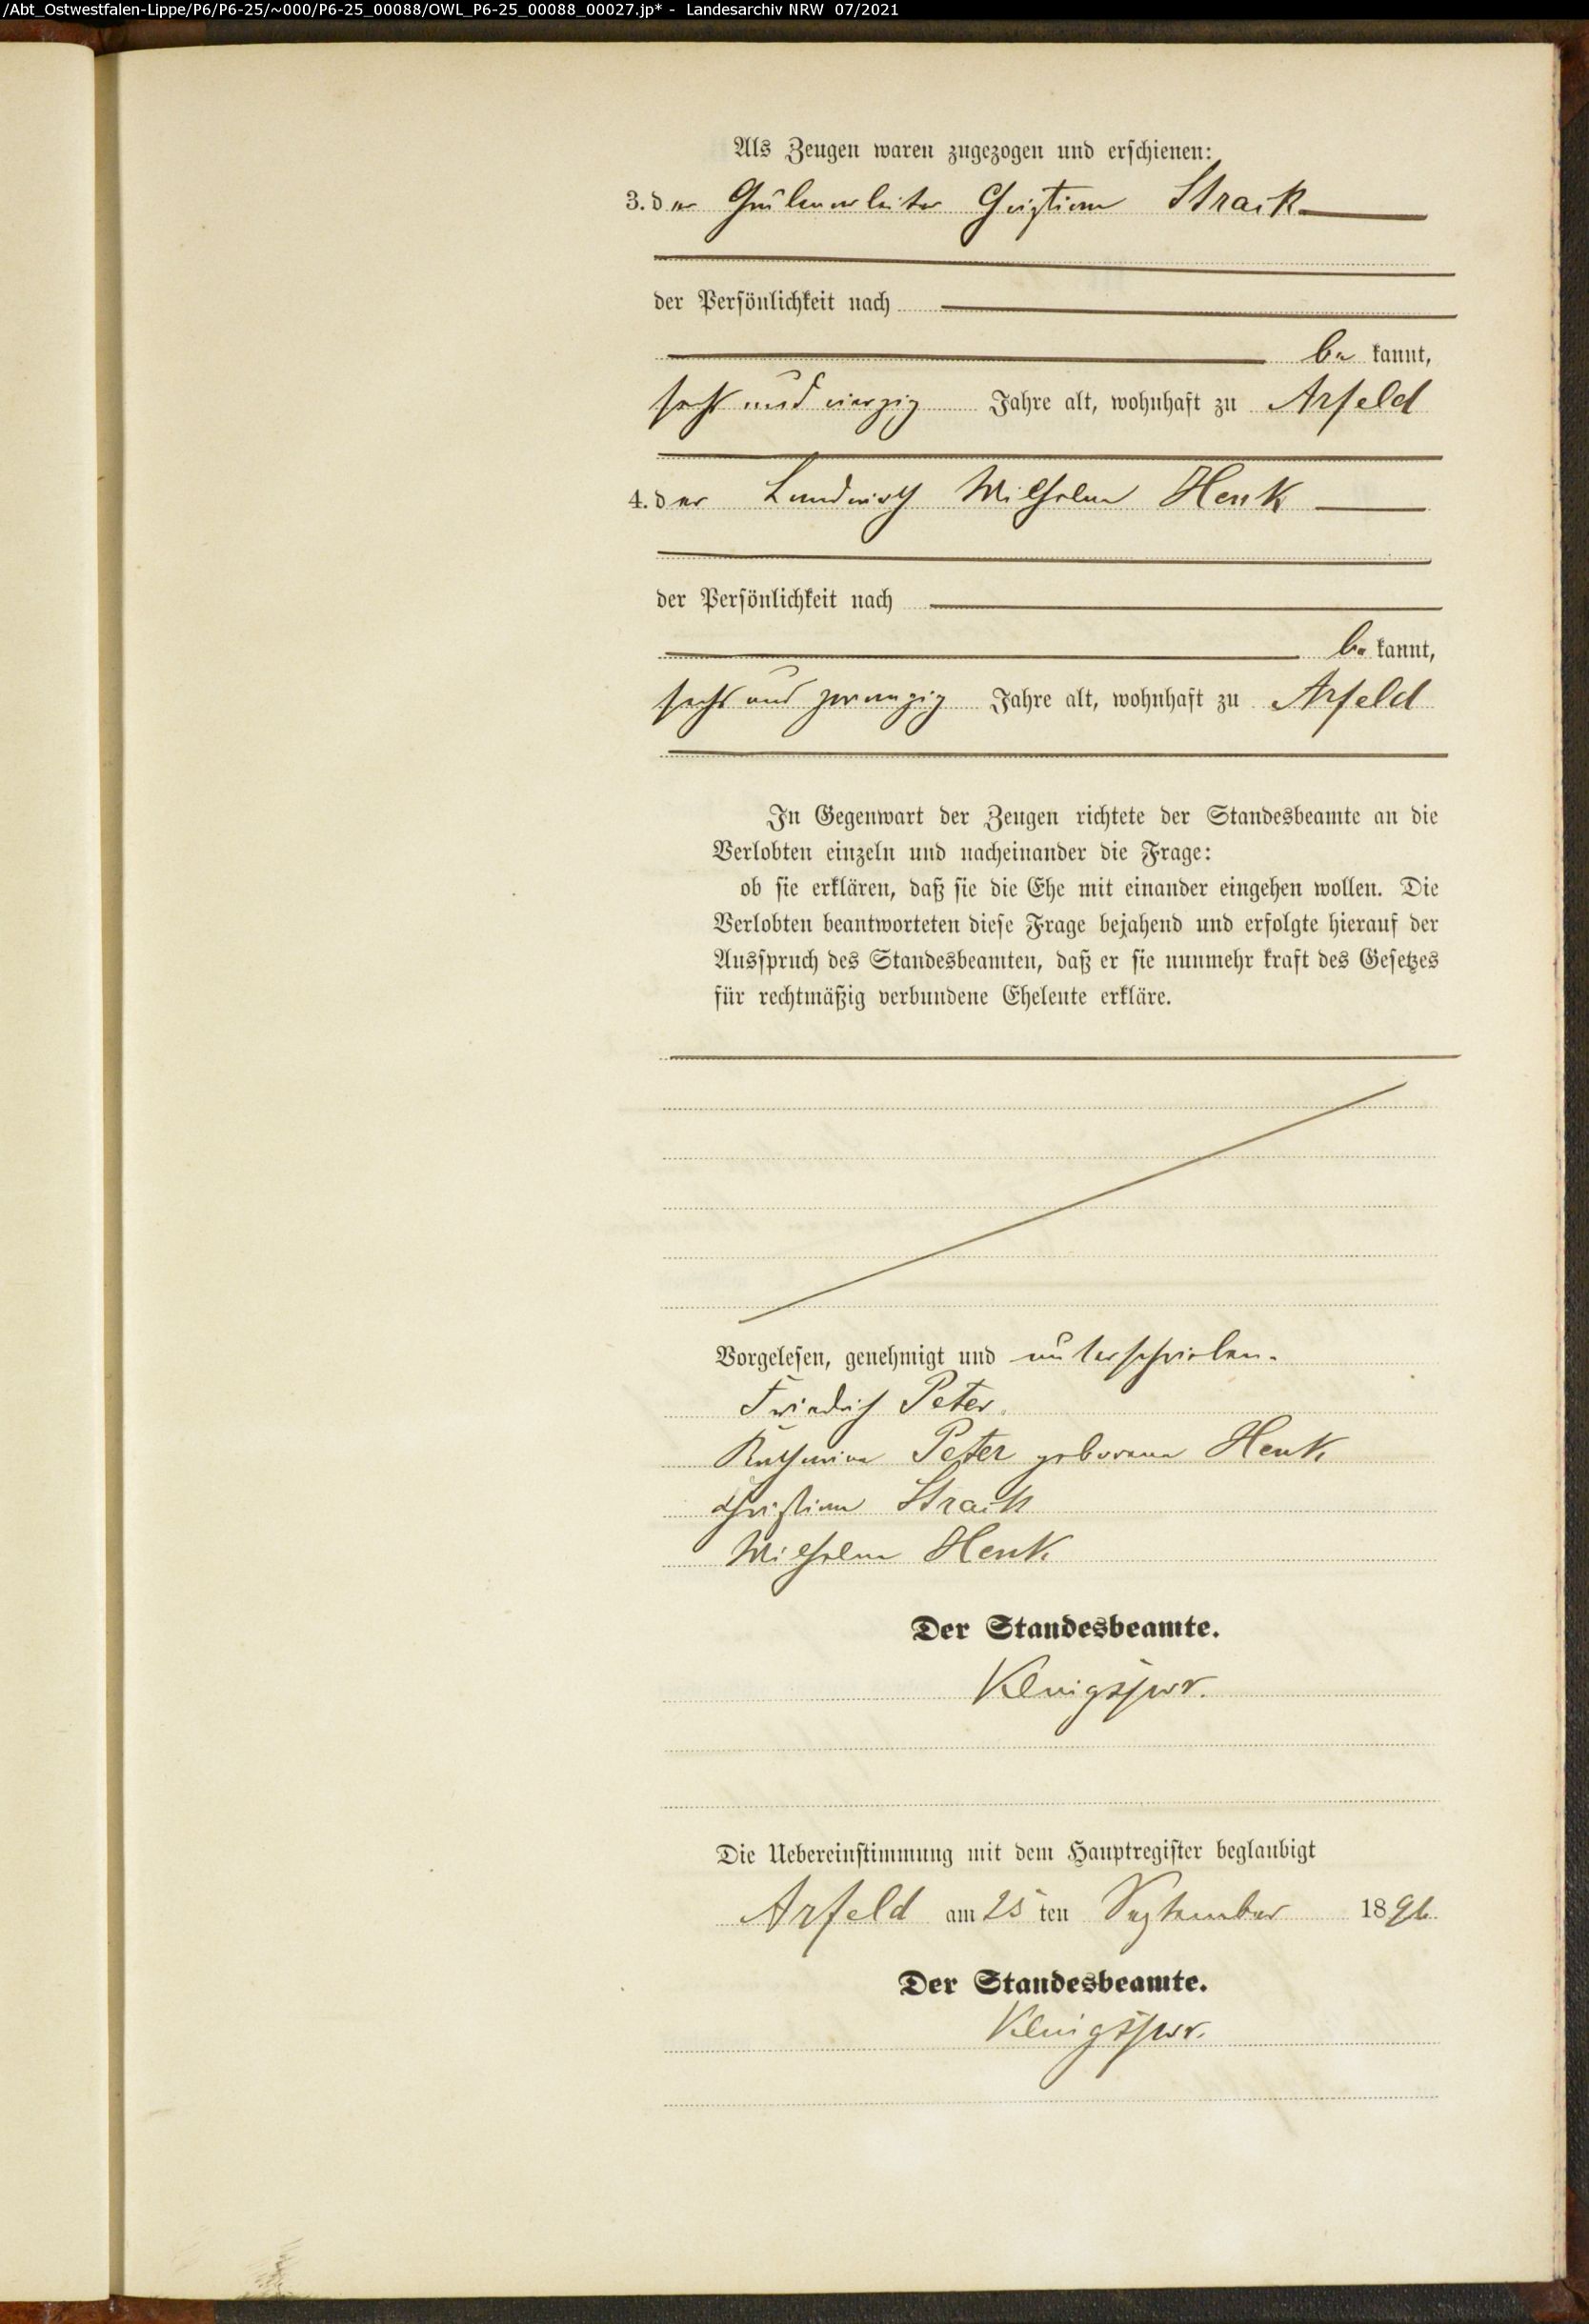 /Abt_Ostwestfalen-Lippe/P6/P6-25/~000/P6-25_00088/OWL_P6-25_00088_00027.jp* - Landesarchiv NRW 07/2021
Als Zeugen waren zugezogen und erschienen:
3. der Grubenarbeiter Christian Strack
der Persönlichkeit nach
be kannt,
sechs und vierzig Jahre alt, wohnhaft zu Arfeld
4. der Landwirth Wilhelm Henk
der Persönlichkeit nach
be kannt,
sechs und zwanzig Jahre alt, wohnhaft zu Arfeld
In Gegenwart der Zeugen richtete der Standesbeamte an die
Verlobten einzeln und nacheinander die Frage:
ob sie erklären, daß sie die Ehe mit einander eingehen wollen. Die
Verlobten beantworteten diese Frage bejahend und erfolgte hierauf der
Ausspruch des Standesbeamten, daß er sie nunmehr kraft des Gesetzes
für rechtmäßig verbundene Eheleute erkläre.
Vorgelesen, genehmigt und unterschrieben.
Friedrich Peter.
Katharina Peter geborene Henk
Christian Strack
Wilhelm Henk
Der Standesbeamte.
Die Uebereinstimmung mit dem Hauptregister beglaubigt
Arfeld am 25 ten September 1896.
Der Standesbeamte.